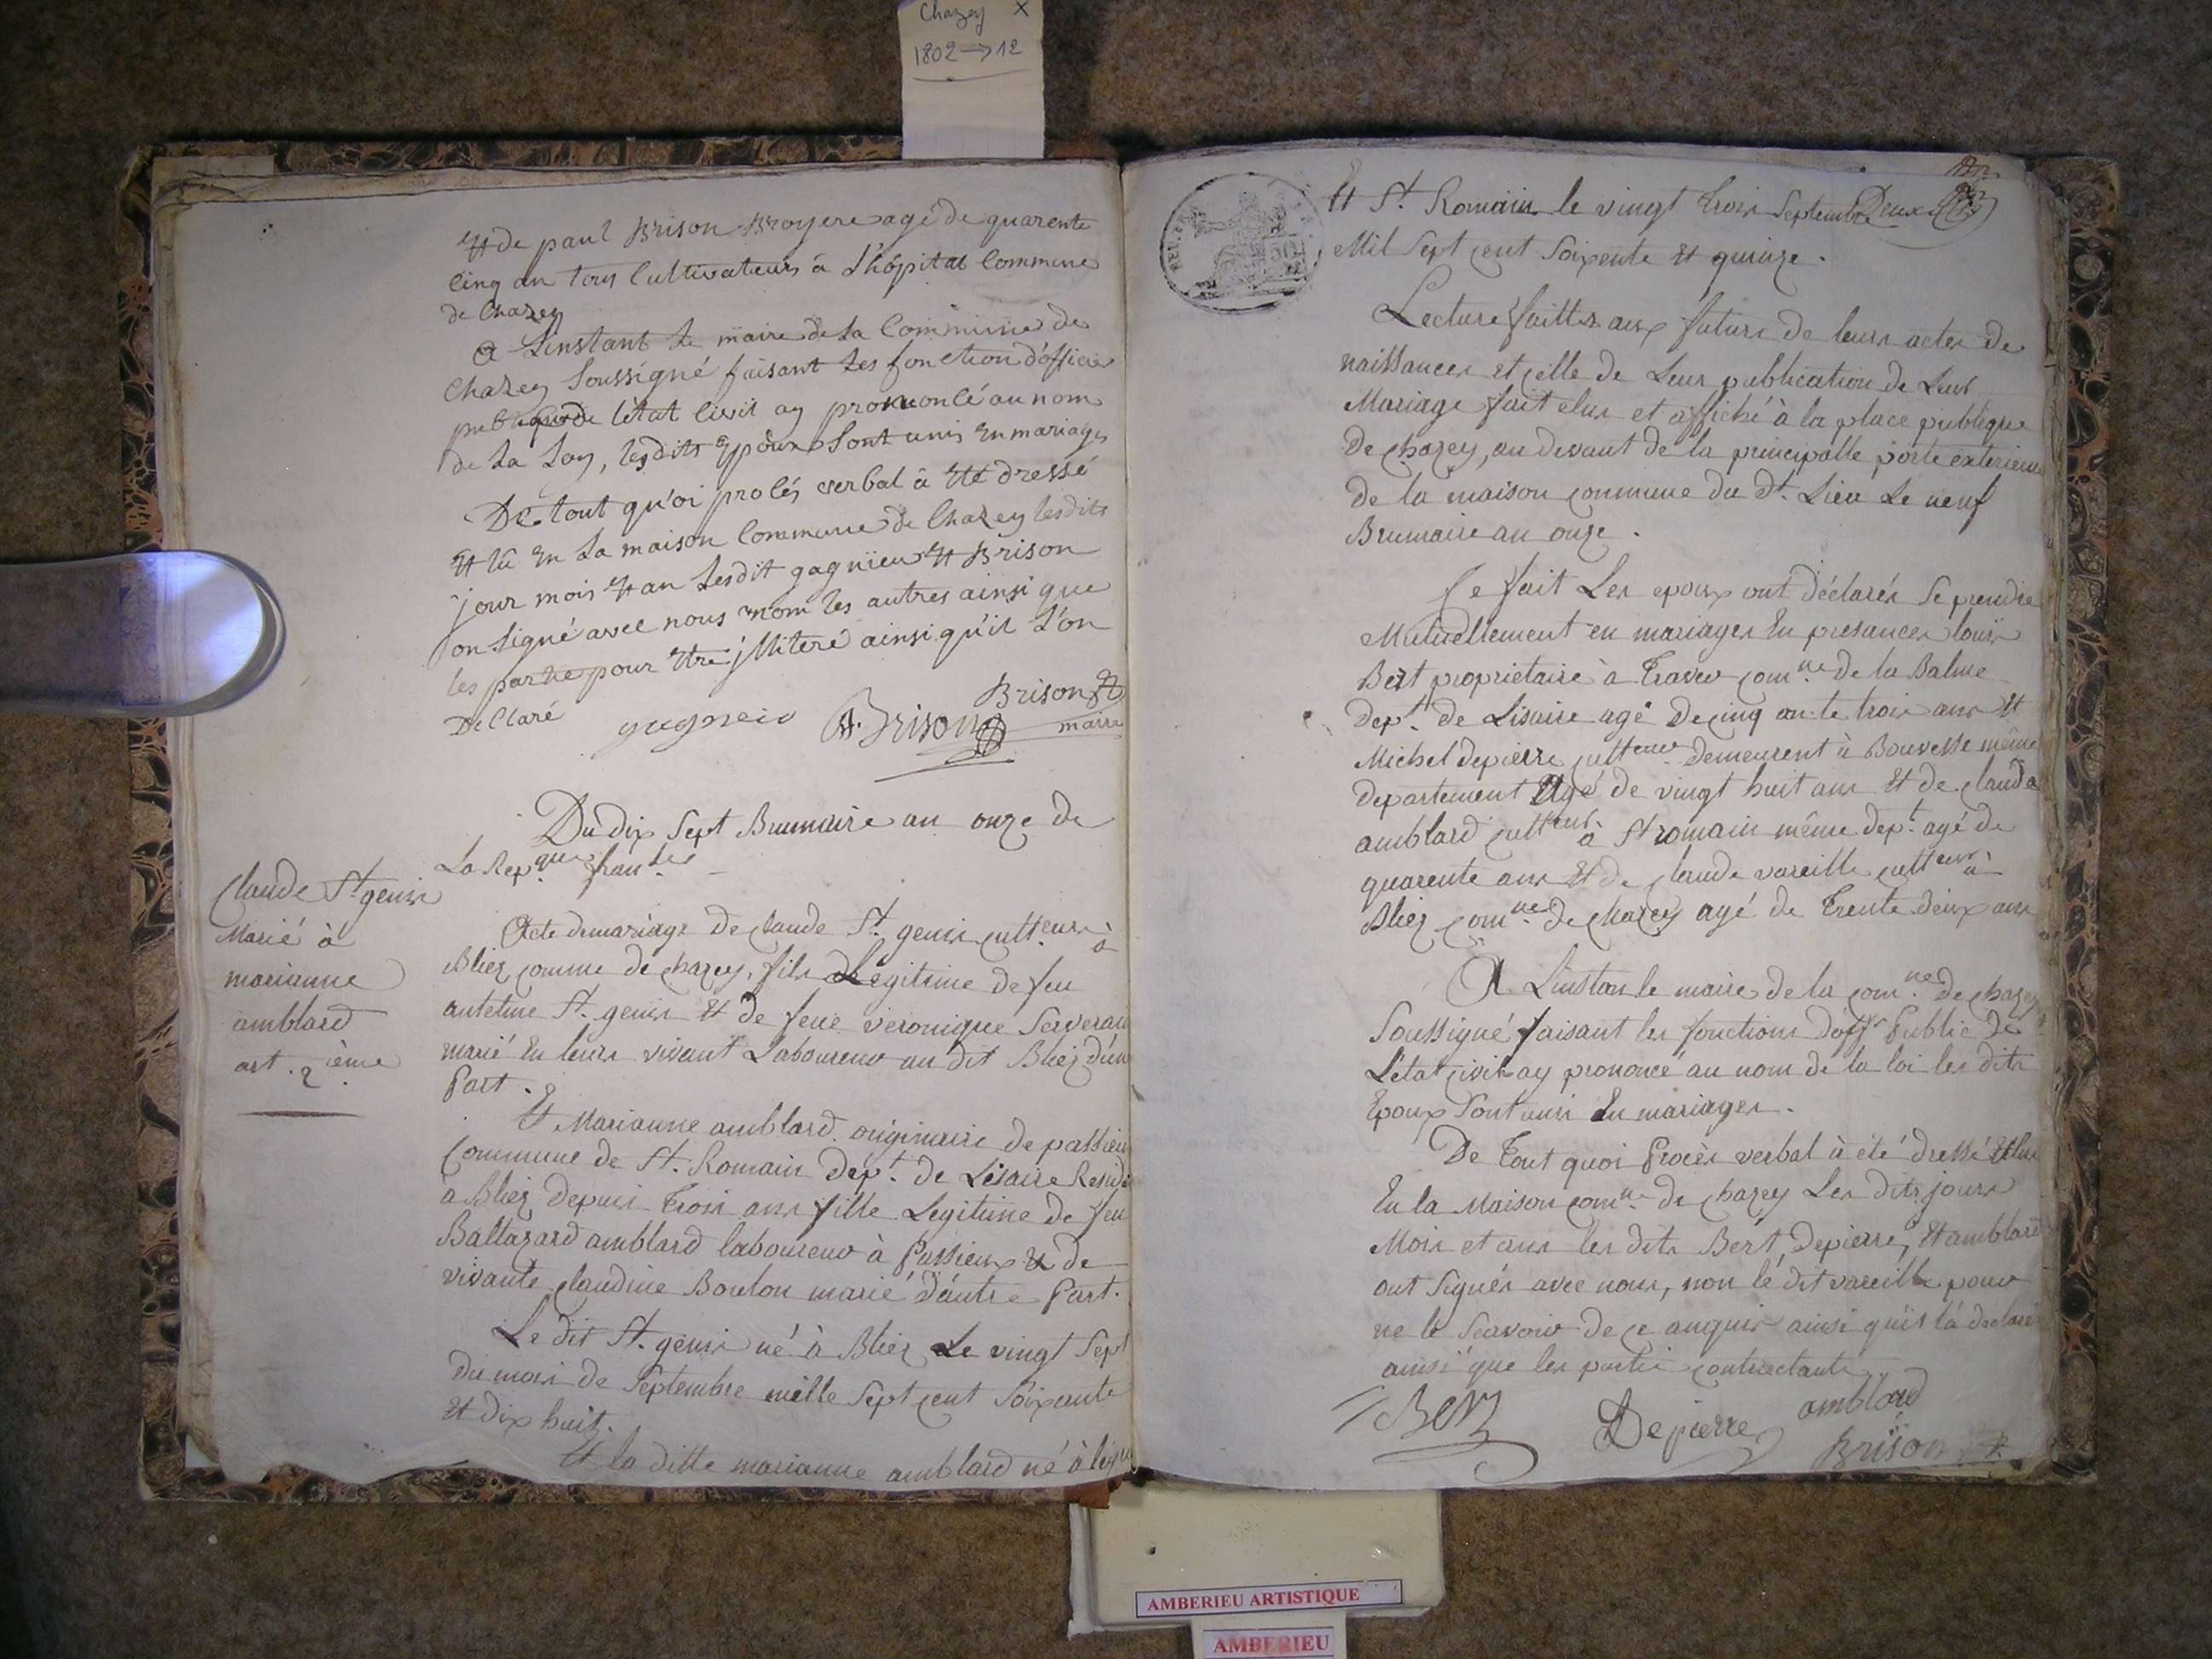 Chazey X
1802 → 12
Et de paul Brison Broyere agé de quarente
cinq an tous Cultivateurs à L'hôpital Commune
de Chazey
a Linstant Le maire de La Commune de
Chazey Soussigné faisant Les fonction d'officier
publique de l'état Civil ay prononcé au nom
de La Loy, lesdits Epoux Sont unis En mariages
De tout qu'oi procés verbal à Eté dressé
Et lû En La maison Commune de Chazey lesdits
jour mois Et an Lesdit gagnieu Et Brison
on signé avec nous nom les autres ainsi que
les partie pour Etre illiteré ainsi qu'il L'on
Declaré
Brison
maire
Brison
Du dix Sept Brumaire an onze de
La Rep.que fran.
Claude St genis
Marié à
marianne
amblard
art. 2ième
Acte de mariage de Claude St. genis cultteur à
Bliez comme de chazey, fils Legitime de feu
antelme St. genis Et de feue veronique Serveran
marié En leurs vivant Laboureur au dit Bliez d'un
Part.
Et Marianne amblard originaire de passieu
Commune de St. Romain dept. de Lisaire Resid
a Bliez depuis trois ans fille Legitime de feu
Baltazard amblard laboureur à Passieux Et de
vivante Claudine Boulon marié d'autre Part.
Le dit St. genis né à Bliez Le vingt Sept
du mois de Septembre mille Sept cent Soixante
Et dix huit.
Et la ditte marianne amblard né à
Et St. Romain le vingt trois Septembre
Mil Sept cent Soixente Et quinze.
Lecture faittes aux futurs de leurs actes de
naissances et celle de Leur publication de Leur
Mariage fait elus et affiché à la place publique
De chazey, au devant de la principalle porte exterieur
de la maison commune du dt. Lieu Le neuf
Brumaire an onze.
Ce fait Les epoux ont déclarés Se prendre
Mutuellement en mariages En presances louis
Bert proprietaire à Travers comne de la Balme
dept. de Lisaire agé de cinquante trois ans Et
Michel depierre cultteur demeurent à Bouvesse même
departement Agé de vingt huit ans Et de claude
amblard cultteur à St romain même dept. agé de
quarente ans Et de claude vareille cultteur à
Bliez comne de chazey agé de trente deux ans
A Linstan le maire de la comne de chazey
Soussigné faisant les fonctions d'offr Public de
L'etat civil ay prononcé au nom de la loi les dits
Epoux Sont unis En mariages.
De tout quoi Procès verbal à été dressé Et lu
En la Maison comne de chazey Les dits jours
Mois et ans les dits Bert, depierre, Et amblard
ont Signés avec nous, non lé dit vareille pour
ne le Scavoir de ce anquis ainsi qu'il la declaré
ainsi que les partie contractante
Bert
Depierre
amblard
Brison
AMBERIEU ARTISTIQUE
AMBERIEU